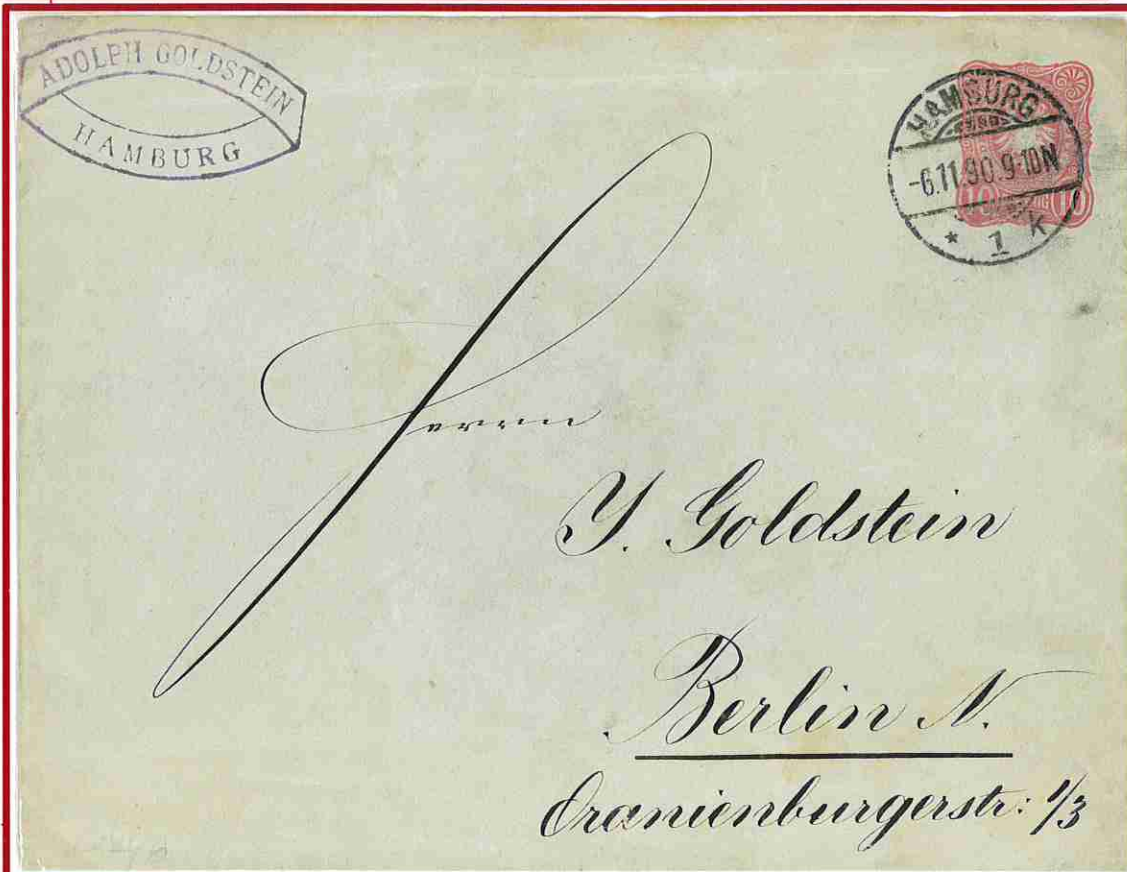 ADOLPH GOLDSTEIN
HAMBURG
HAMBURG
-6.11.90.9-10N
* 1 k
10 10
Herrn
Y. Goldstein
Berlin N.
Oranienburgerstr: 1/3